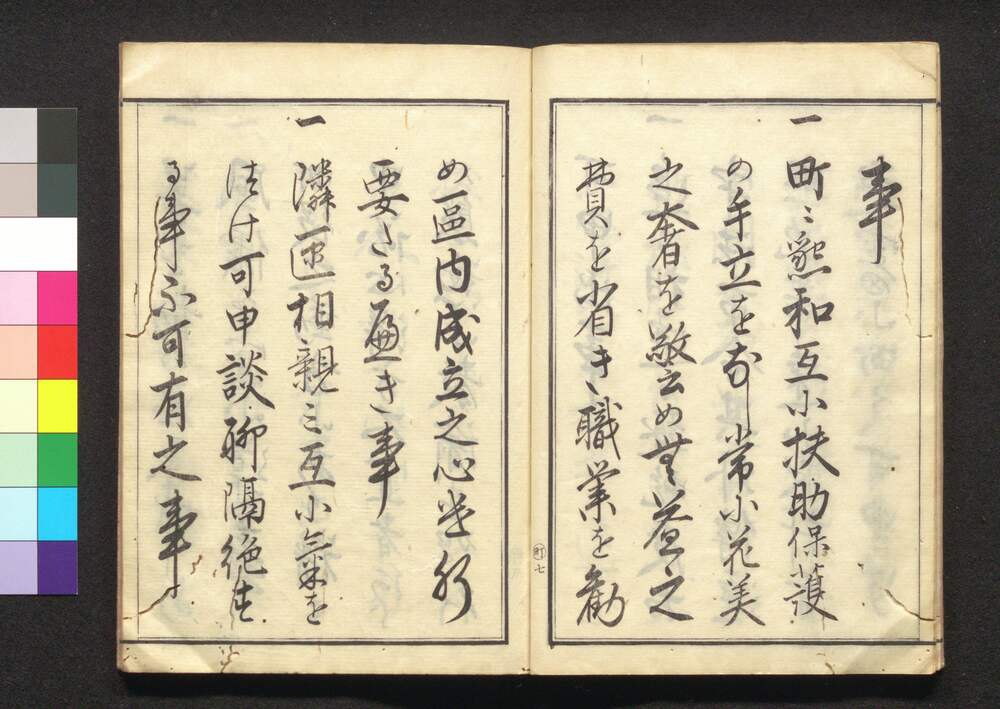 事
一 町々懇和互ニ扶助保護
の手立をなし常ニ花美
之奢を警め無益之
費を省き、職業を勧
め一區内成立之心遣肝
要たる廉き事
一 隣區相親ミ互ニ氣を
つけ可申談聊隔絶す
る事不可有之事
町七